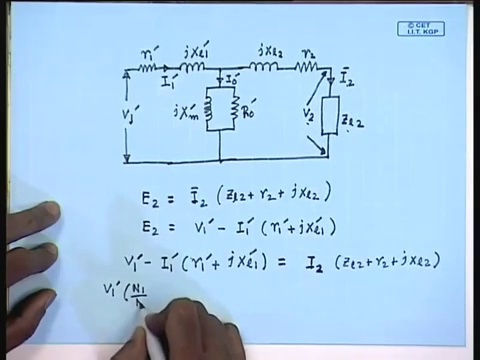 © CET
I.I.T. KGP
r₁′ jxℓ₁′ jxℓ₂ r₂
I₁′ I₀′ Ī₂
V₁′ jXₘ′ R₀′ V₂ Zℓ₂
E₂ = Ī₂ (Zℓ₂ + r₂ + jxℓ₂)
E₂ = V₁′ − I₁′ (r₁′ + jxℓ₁′)
V₁′ − I₁′ (r₁′ + jxℓ₁′) = I₂ (Zℓ₂ + r₂ + jxℓ₂)
V₁′ (N₁/